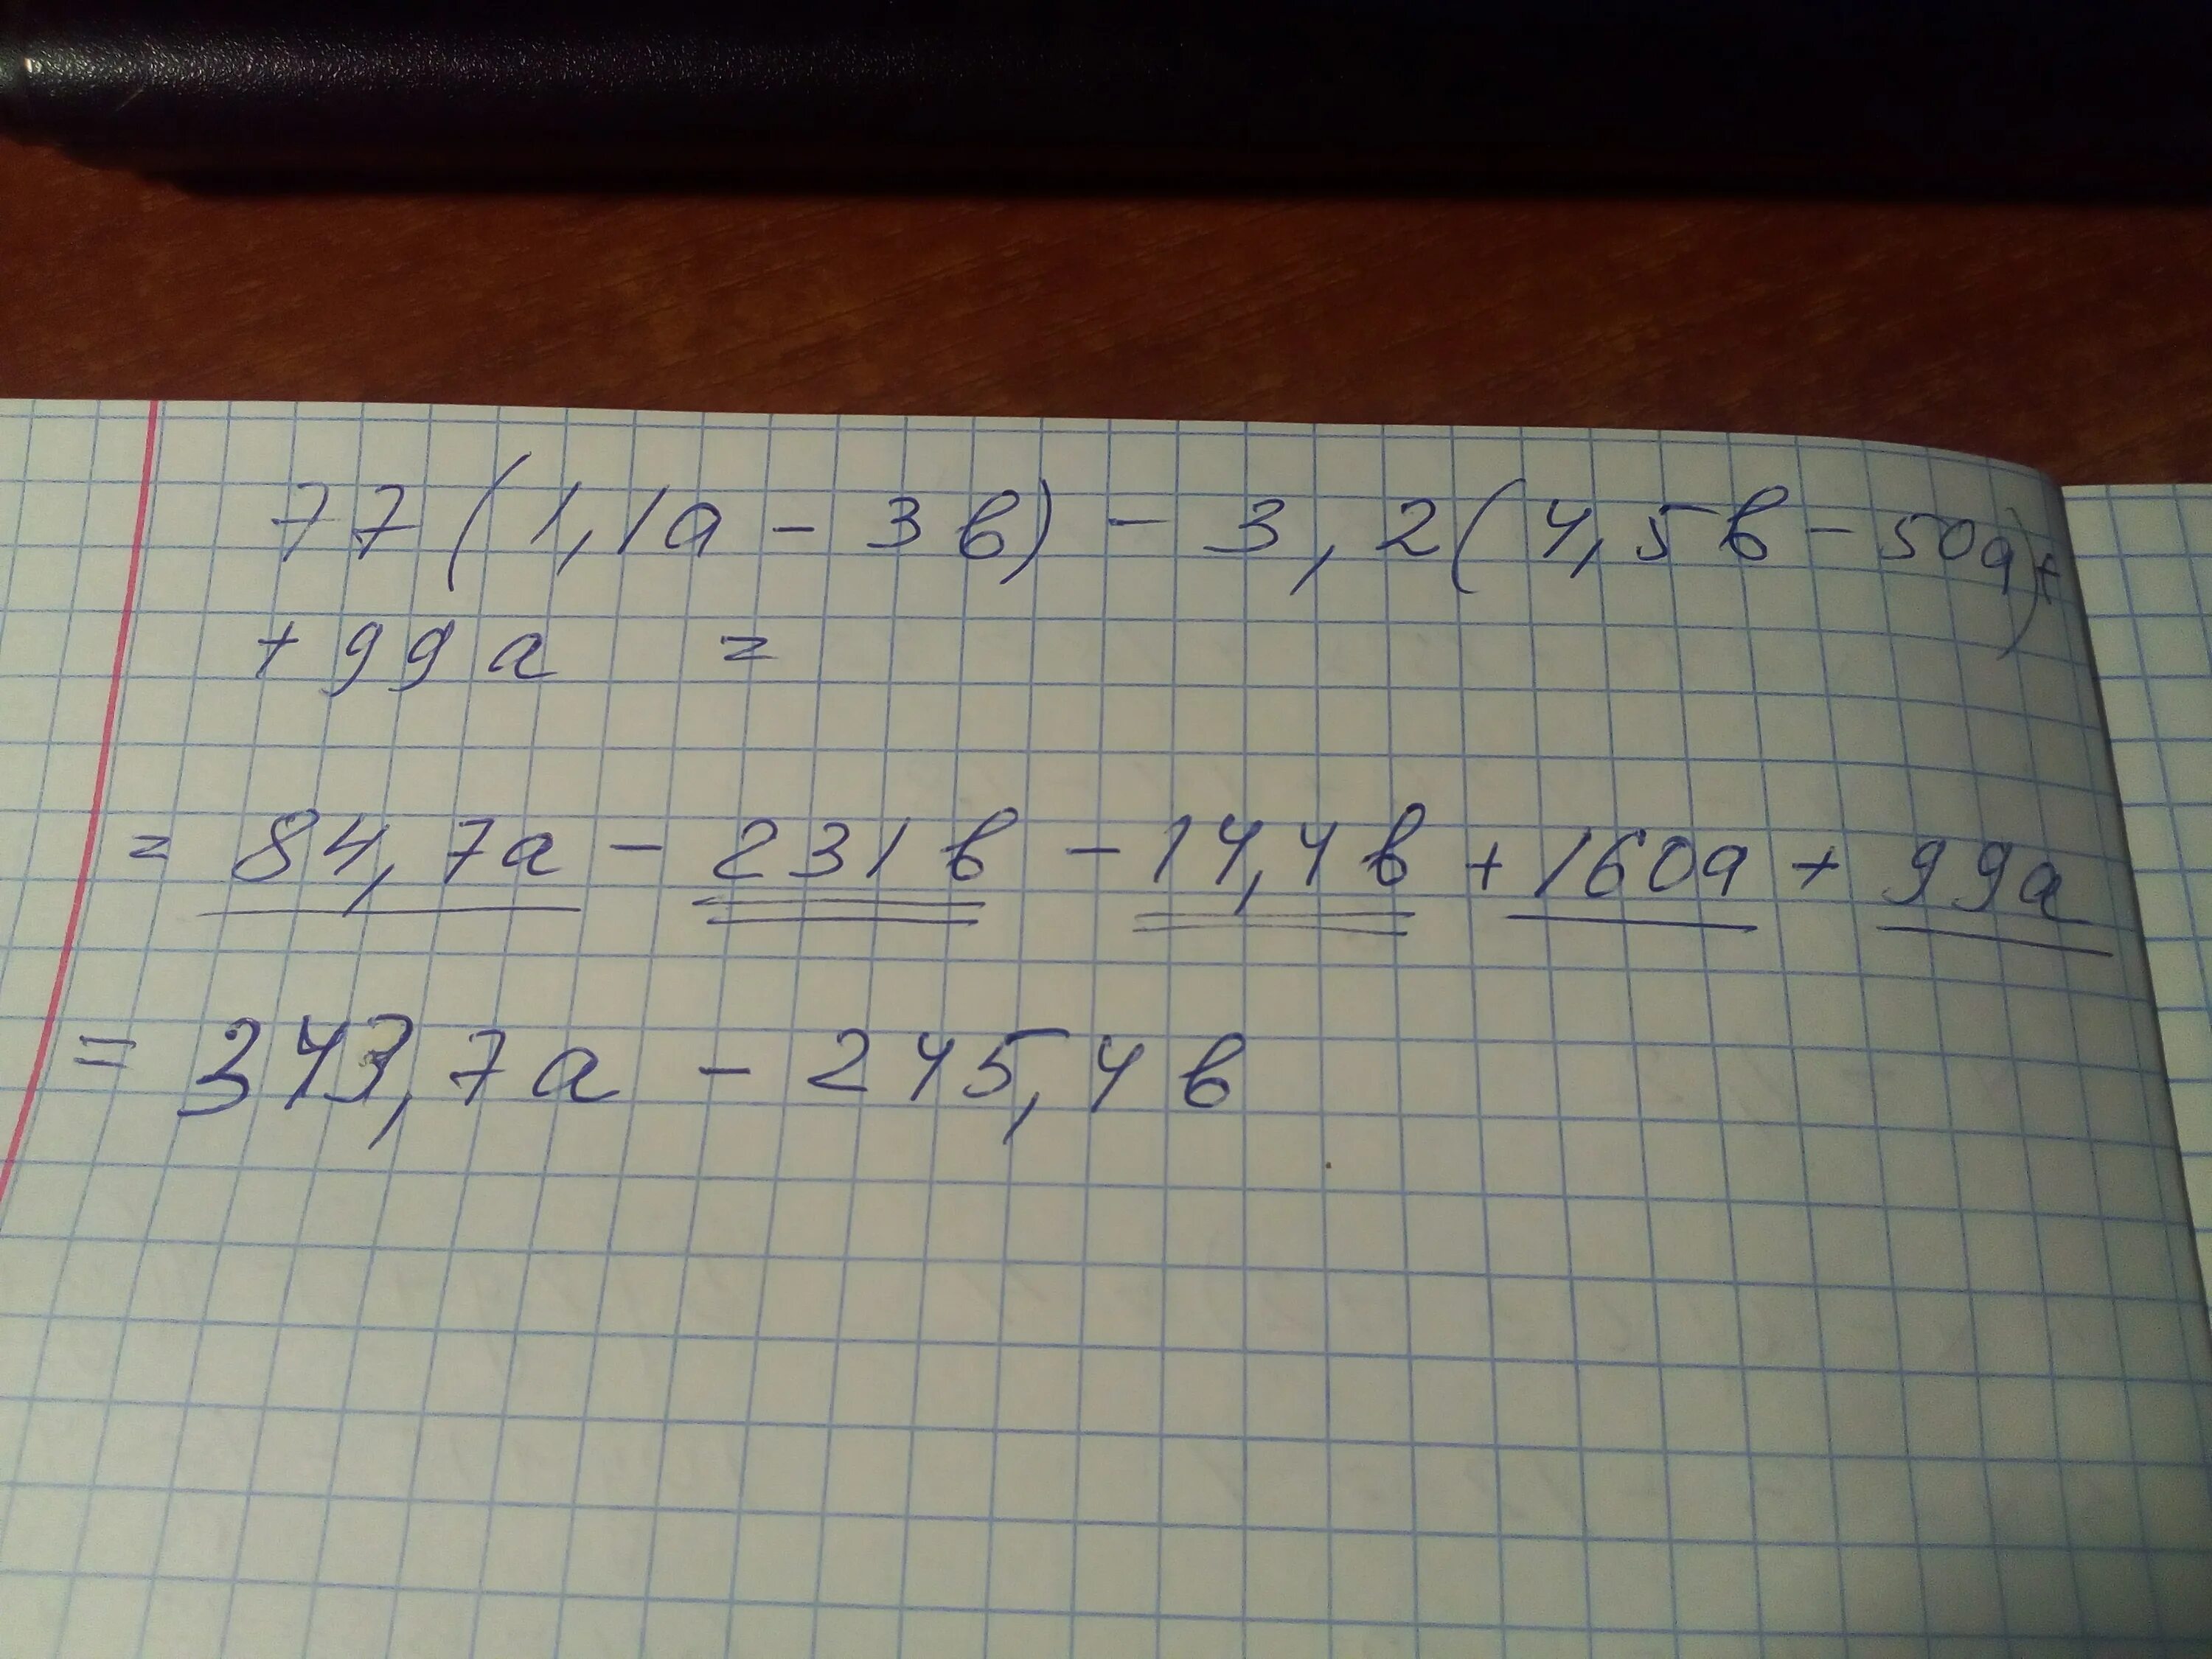 77(1,1a - 3в) - 3,2(4,5в - 50a)+
+ 99a =
= 84,7a - 231в - 14,4в + 160a + 99a
= 343,7a - 245,4в